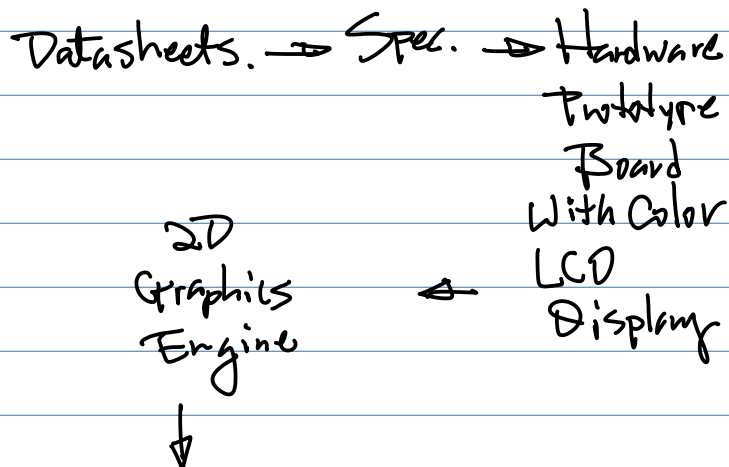 Datasheets. → Spec. → Hardware
Prototype
Board
With Color
LCD
Display
←
2D
Graphics
Engine
↓